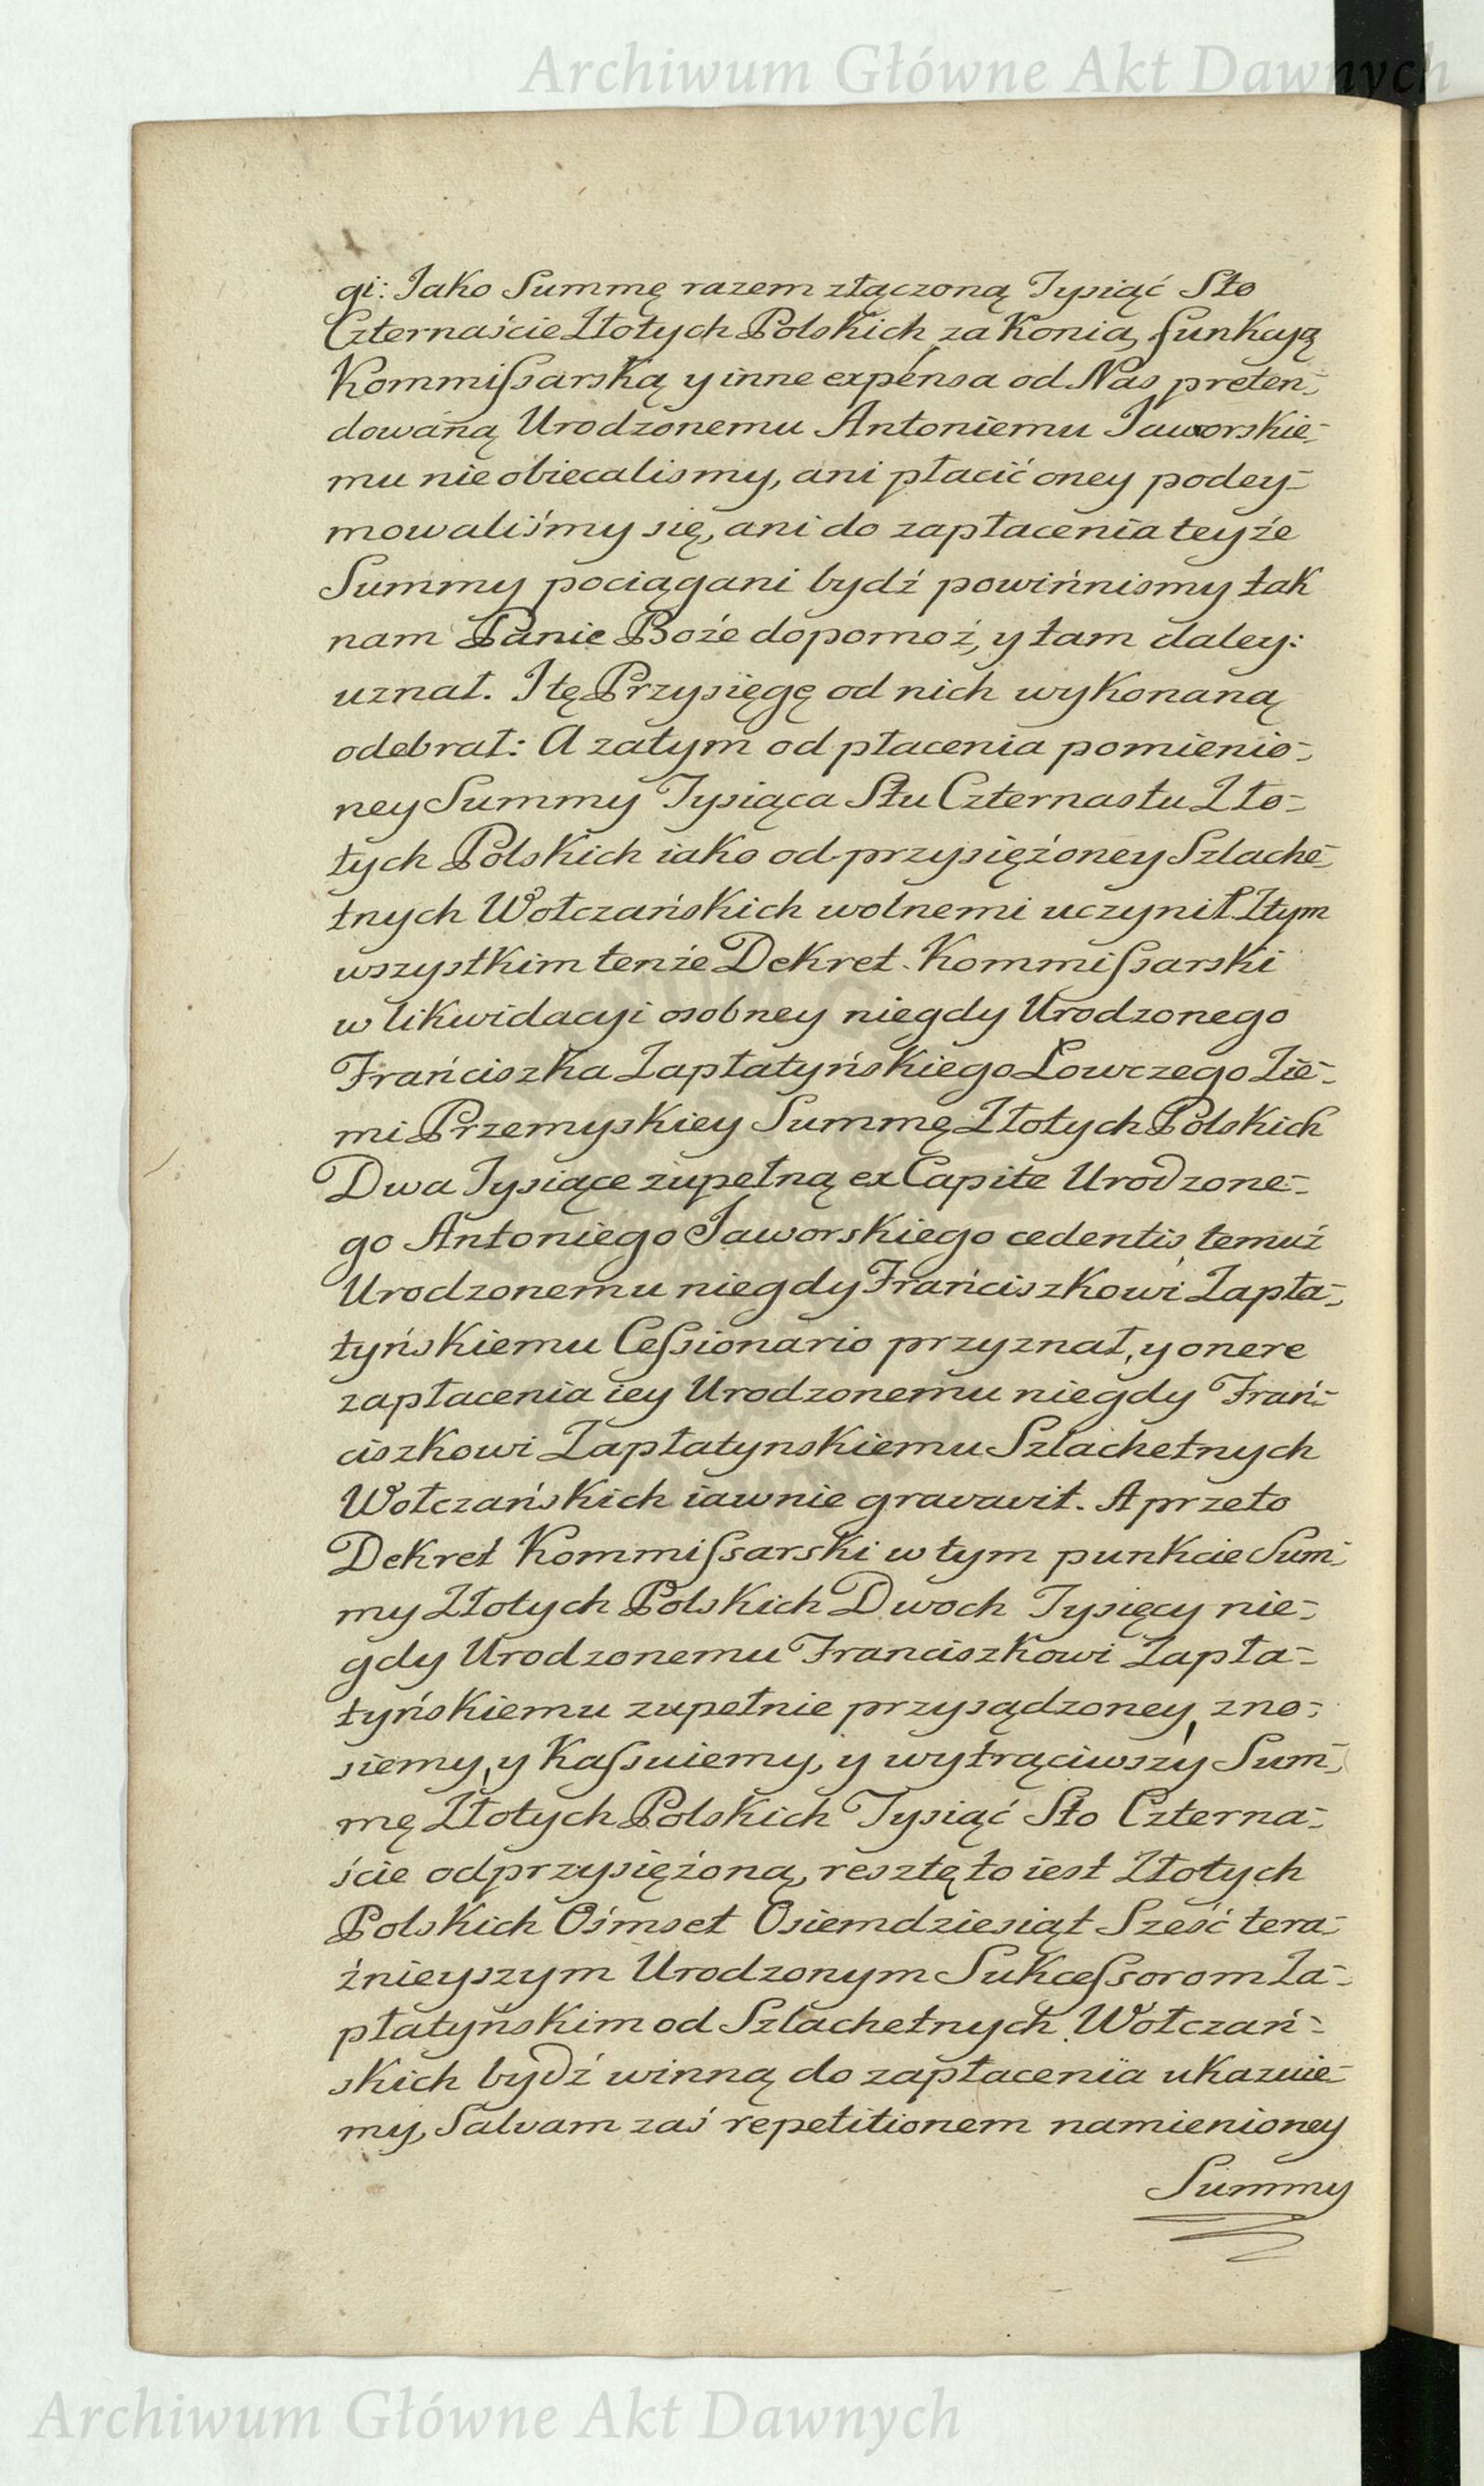 Archiwum Główne Akt Dawnych
gi: Jako Summę razem złączoną Tysiąć Sto
Czternaście Złotych Polskich za Konia, funkcyą
Kommissarską y inne expensa od Nas preten-
dowaną Urodzonemu Antoniemu Jaworskie-
mu nie obiecalismy, ani płacić oney podey-
mowaliśmy się, ani do zapłacenia teyże
Summy pociągani bydź powińnismy tak
nam Panie Boże dopomoż, y tam daley:
uznał. I tę Przysięgę od nich wykonaną
odebrał: A zatym od płacenia pomienio-
ney Summy Tysiąca Stu Czternastu Zło-
tych Polskich iako od-przysiężoney Szlache-
tnych Wołczańskich wolnemi uczynił. Z tym
wszystkim tenże Dekret Kommissarski
w likwidacyi osobney niegdy Urodzonego
Frańciszka Zapłatyńskiego Łowczego Zie-
mi Przemyskiey Summę Złotych Polskich
Dwa Tysiące zupełną ex Capite Urodzone-
go Antoniego Jaworskiego cedentis temuż
Urodzonemu niegdy Frańciszkowi Zapła-
tyńskiemu Cessionario przyznał, y onere
zapłacenia iey Urodzonemu niegdy Frań-
ciszkowi Zapłatynskiemu Szlachetnych
Wołczańskich iawnie gravavit. A przeto
Dekret Kommissarski w tym punkcie Sum-
my Złotych Polskich Dwoch Tysięcy nie-
gdy Urodzonemu Franciszkowi Zapła-
tyńskiemu zupełnie przysądzoney, zno-
siemy, y Kassuiemy, y wytrąciwszy Sum-
mę Złotych Polskich Tysiąć Sto Czterna-
ście odprzysiężoną, resztę to iest Złotych
Polskich Ośmset Osiemdziesiąt Sześć tera-
źnieyszym Urodzonym Sukcessorom Za-
płatyńskim od Szlachetnych Wołczań-
skich bydź winną do zapłacenia ukazuie-
my, Salvam zaś repetitionem namienioney
Summy
Archiwum Główne Akt Dawnych